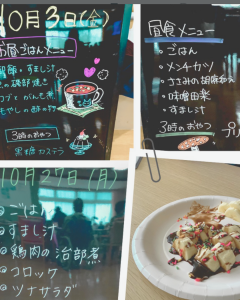 10月3日(金)
お昼ごはんメニュー
すまし汁
の磯部焼き
3時のおやつ
黒糖カステラ
昼食メニュー
・ごはん
・メンチカツ
・ささみの胡麻和え
・味噌田楽
・すまし汁
3時のおやつ
10月27日(月)
ごはん
すまし汁
鶏肉の治部煮
コロッケ
ツナサラダ